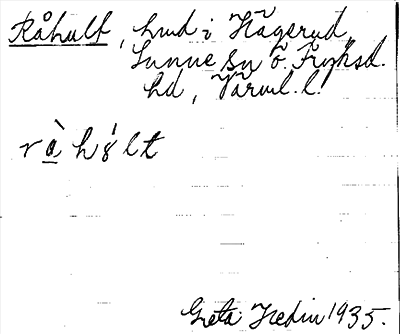 Råhult, hmd i Hägerud
Sunne sn Ö. Fryksd.
hd, Värml. l.
rå̀họ́lt
Greta Hedin 1935.